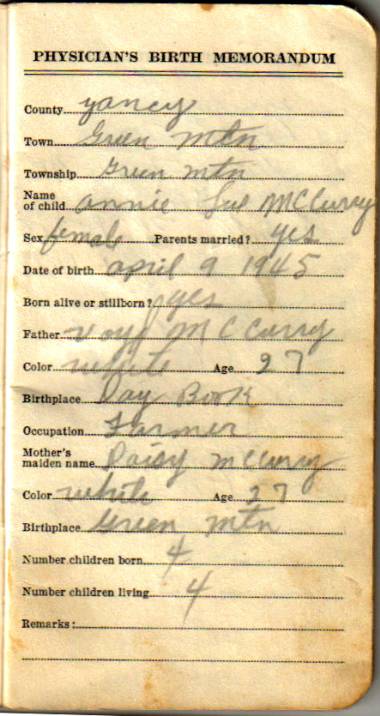 PHYSICIAN'S BIRTH MEMORANDUM
County yancy
Town Green mtn
Township Green mtn
Name of child annie Sue McCurry
Sex female Parents married? yes
Date of birth april 9 1945
Born alive or stillborn? yes
Father McCurry
Color white Age 27
Birthplace Day Book
Occupation Farmer
Mother's maiden name Daisy McCurry
Color white Age 27
Birthplace Green mtn
Number children born 4
Number children living 4
Remarks: